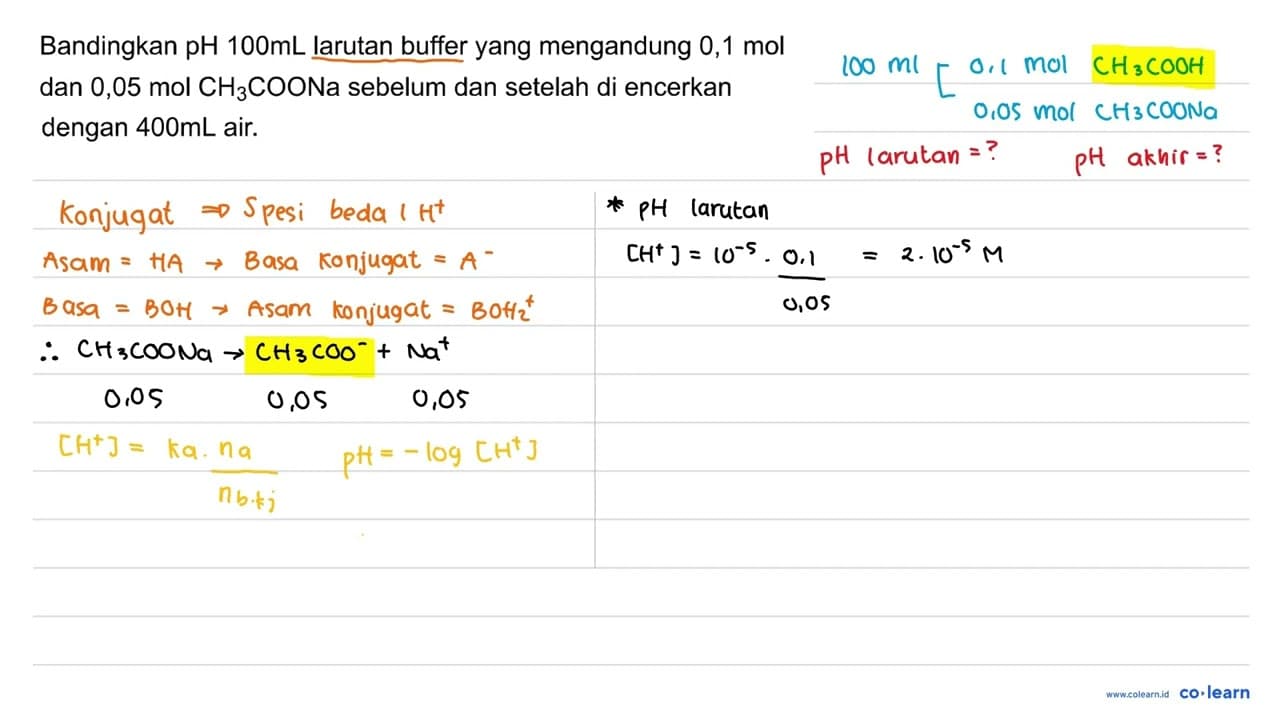 Bandingkan pH 100mL larutan buffer yang mengandung 0,1 mol
dan 0,05 mol CH₃COONa sebelum dan setelah di encerkan
dengan 400mL air.
100 ml [ 0,1 mol CH₃COOH
0,05 mol CH₃COONa
pH larutan = ? pH akhir = ?
Konjugat ⇒ Spesi beda 1 H⁺
Asam = HA → Basa Konjugat = A⁻
Basa = BOH → Asam konjugat = BOH₂⁺
∴ CH₃COONa → CH₃COO⁻ + Na⁺
0,05 0,05 0,05
[H⁺] = ka . na
nb.kj
pH = - log [H⁺]
* pH larutan
[H⁺] = 10⁻⁵ . 0,1 = 2 . 10⁻⁵ M
0,05
www.colearn.id co•learn